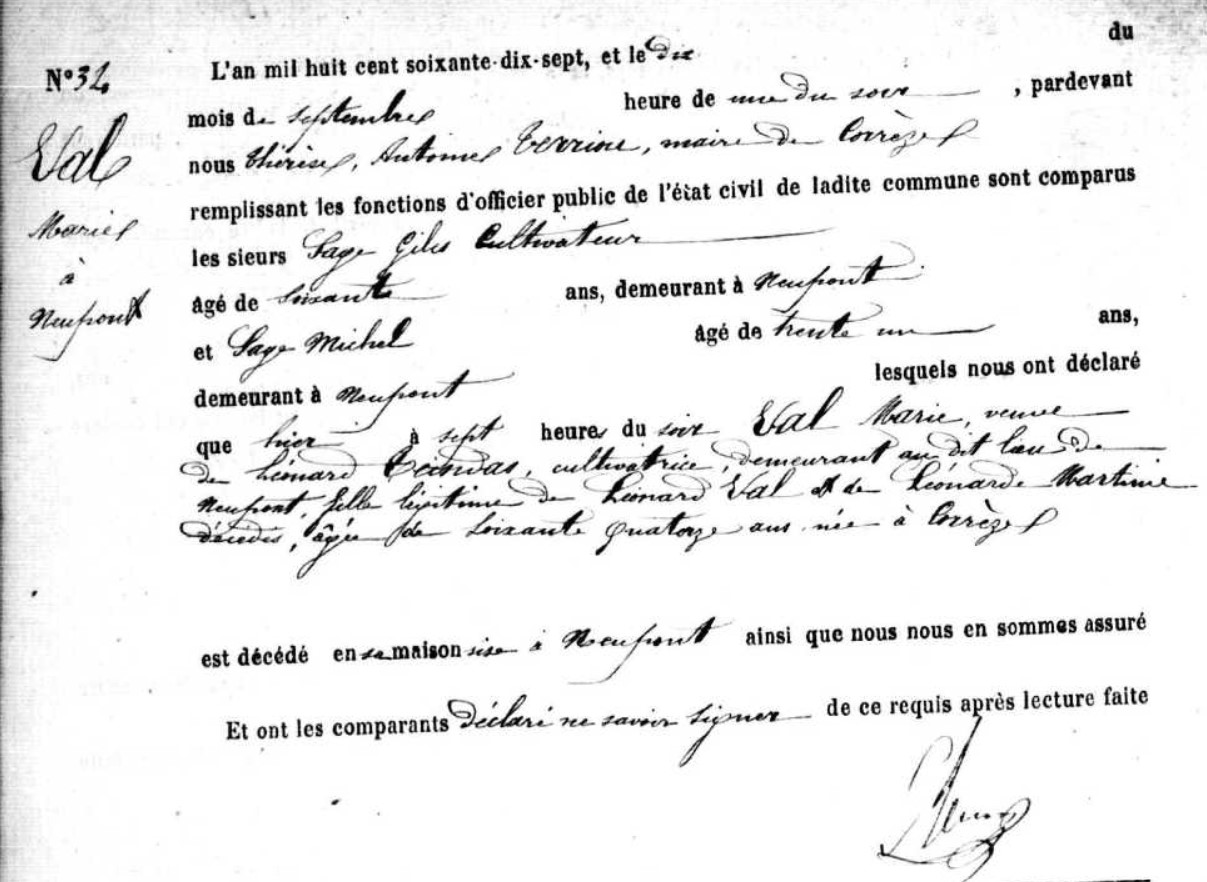 du
N° 32 L'an mil huit cent soixante-dix-sept, et le dix
mois de septembre heure de une du soir , pardevant
Val nous Thérèse, Antoine Terriou, maire de Corrèze
remplissant les fonctions d'officier public de l'état civil de ladite commune sont comparus
Marie les sieurs Sage Giles Cultivateur
à âgé de soixante ans, demeurant à Neupont
Neupont et Sage Michel âgé de trente un ans,
demeurant à Neupont lesquels nous ont déclaré
que hier à sept heures du soir Val Marie, veuve
de Léonard, cultivatrice, demeurant au dit lieu de
Neupont, fille légitime de Léonard Val et de Léonarde Martinie
décédés, âgée de soixante quatorze ans née à Corrèze
est décédé en sa maison sise à Neupont ainsi que nous nous en sommes assuré
Et ont les comparants déclaré ne savoir signer de ce requis après lecture faite